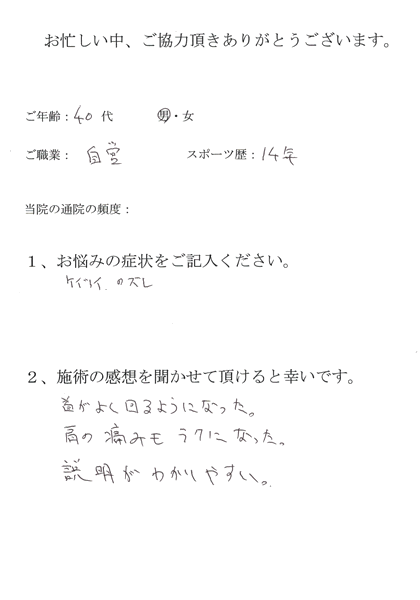 お忙しい中、ご協力頂きありがとうございます。
ご年齢：40代　男・女
ご職業：自営　スポーツ歴：14年
当院の通院の頻度：
1、お悩みの症状をご記入ください。
ケイツイのズレ
2、施術の感想を聞かせて頂けると幸いです。
首がよく回るようになった。
肩の痛みもラクになった。
説明がわかりやすい。